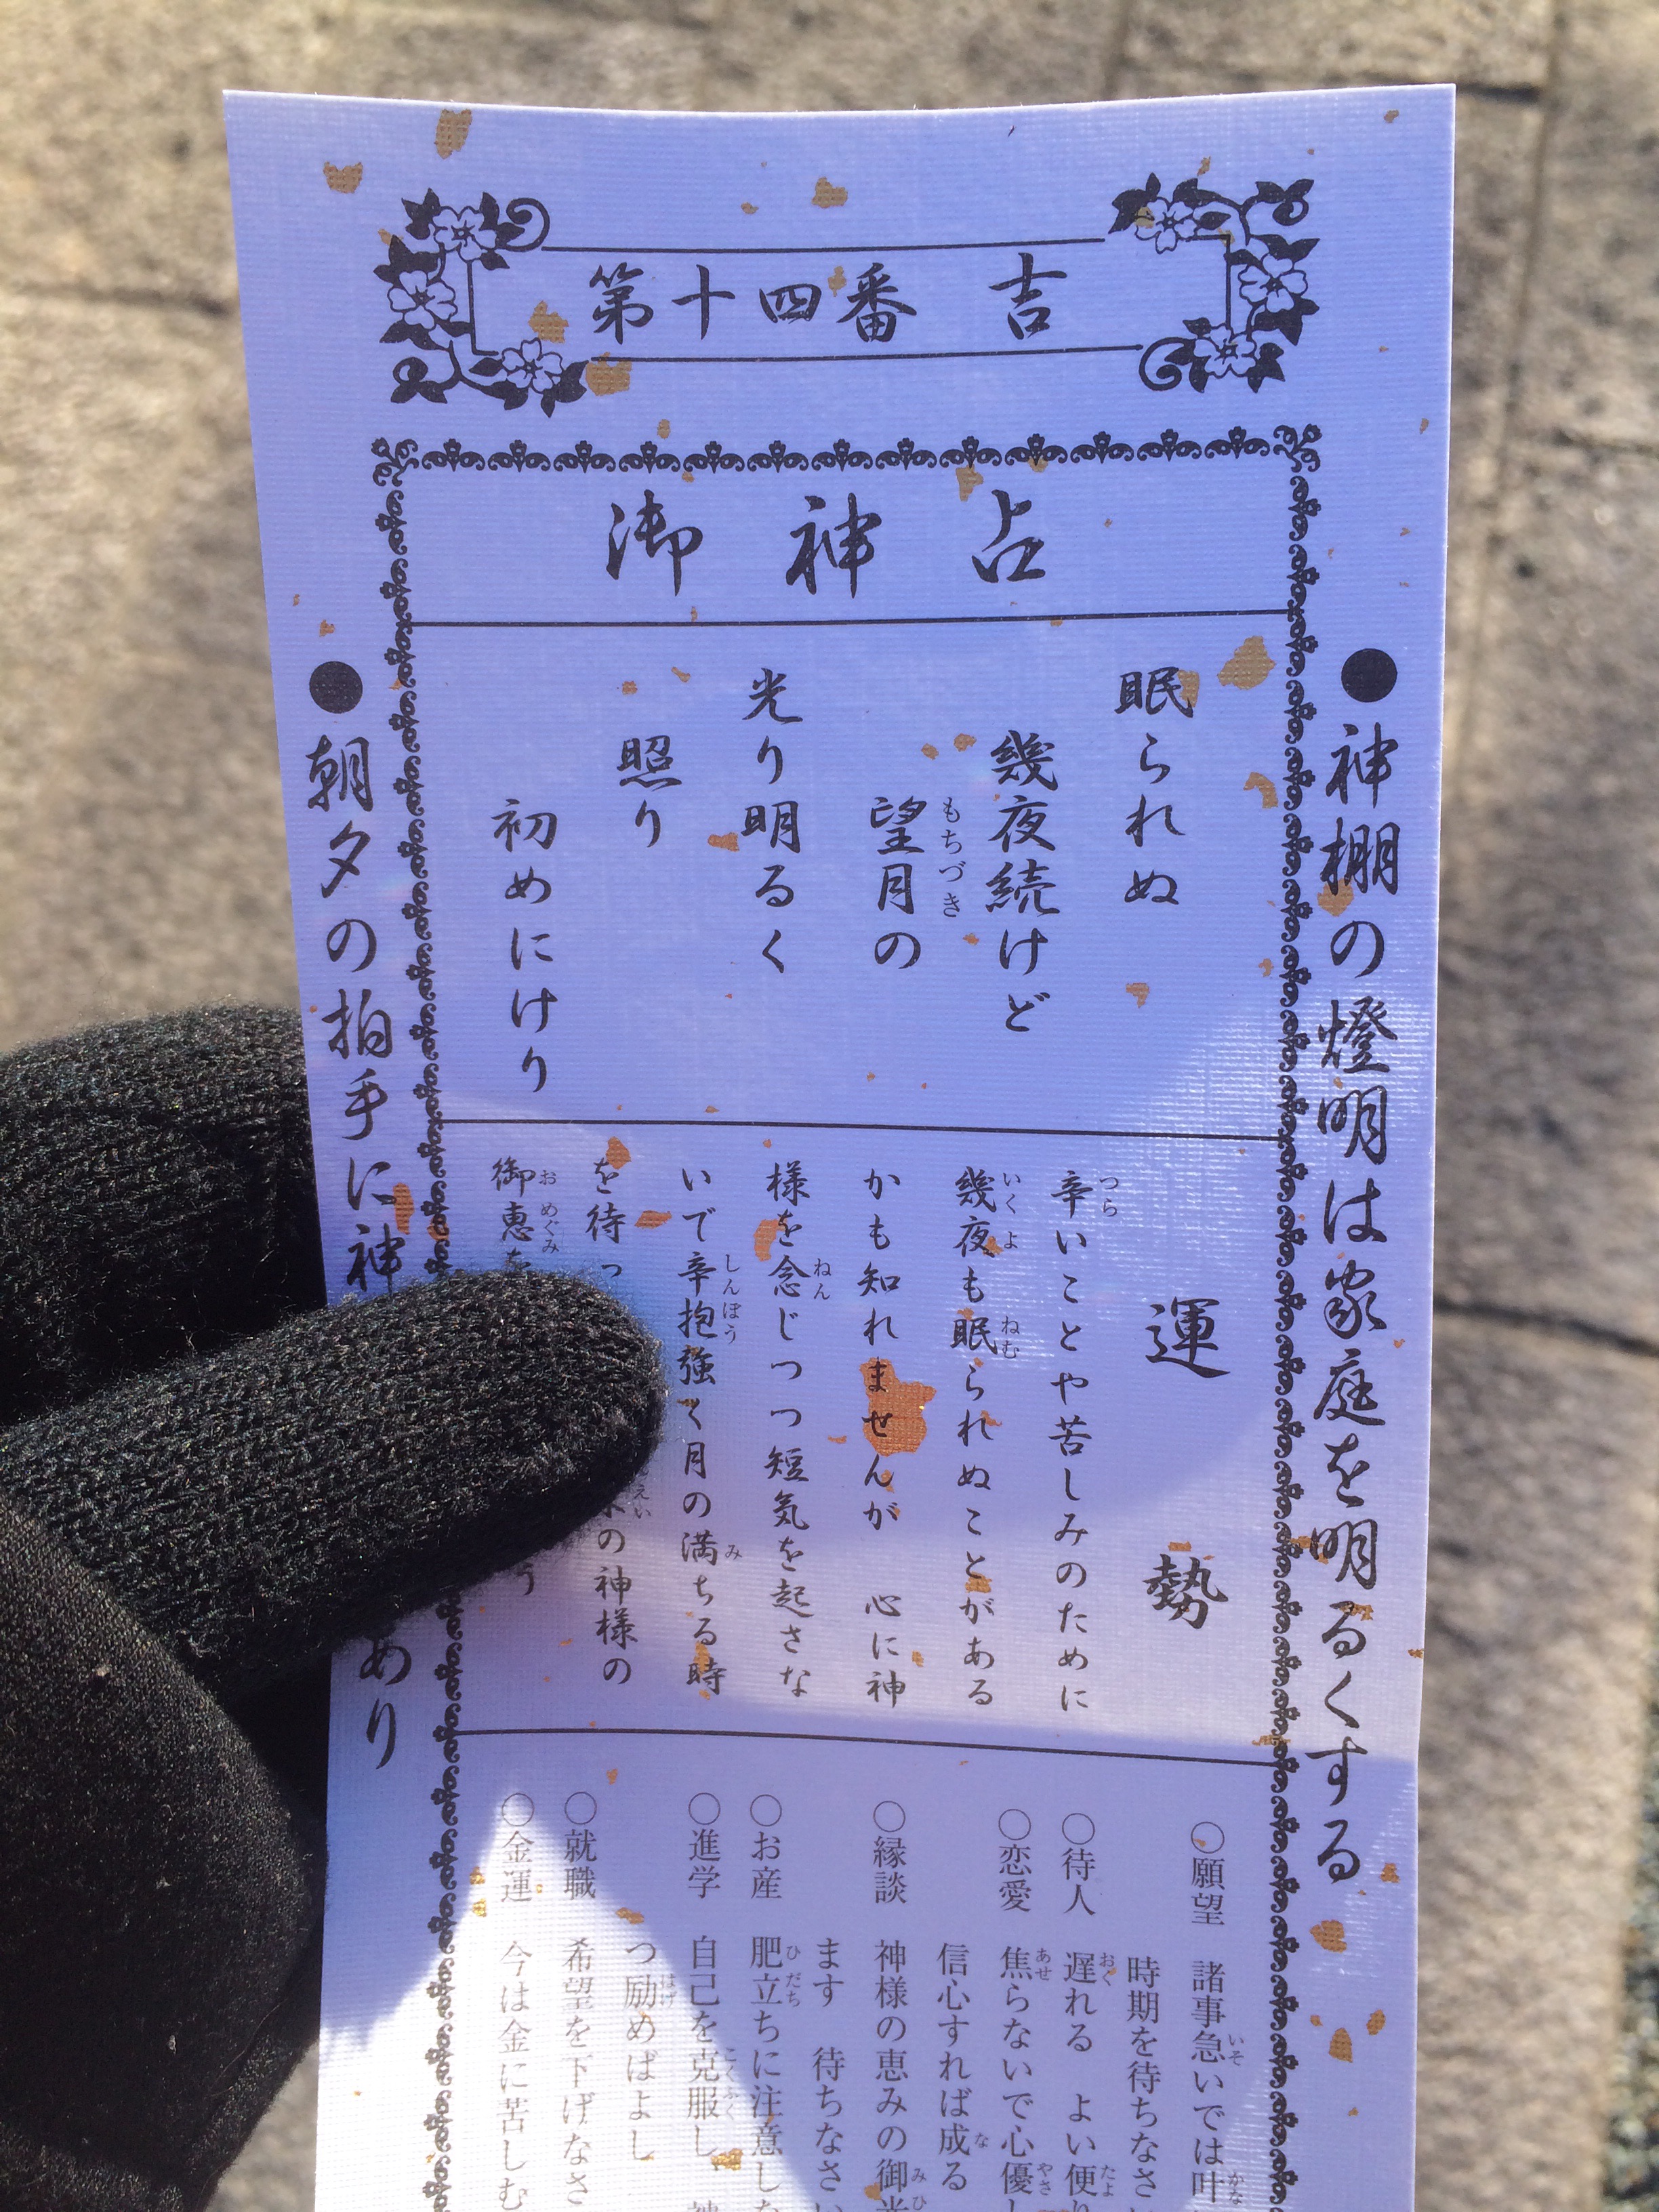 第十四番 吉
御神占
●神棚の燈明は家庭を明るくする
眠られぬ
幾夜続けど
望月の
もちづき
光り明るく
照り
初めにけり
運勢
辛いことや苦しみのために
つら
幾夜も眠られぬことがある
いくよ ねむ
かも知れませんが 心に神
様を念じつつ短気を起さな
ねん
いで辛抱強く月の満ちる時
しんぼう み
を待っ
の神様の
えい
御恵を
おめぐみ
う
○願望 諸事急いでは叶
いそ かな
時期を待ちなさ
○待人 遅れる よい便り
おく たよ
○恋愛 焦らないで心優し
あせ やさ
信心すれば成る
な
○縁談 神様の恵みの御光
みひ
ます 待ちなさい
○お産 肥立ちに注意しな
ひだち
○進学 自己を克服し
こくふく
つ励めばよし
はげ
○就職 希望を下げなさ
○金運 今は金に苦しむ
●朝夕の拍手に神
あり